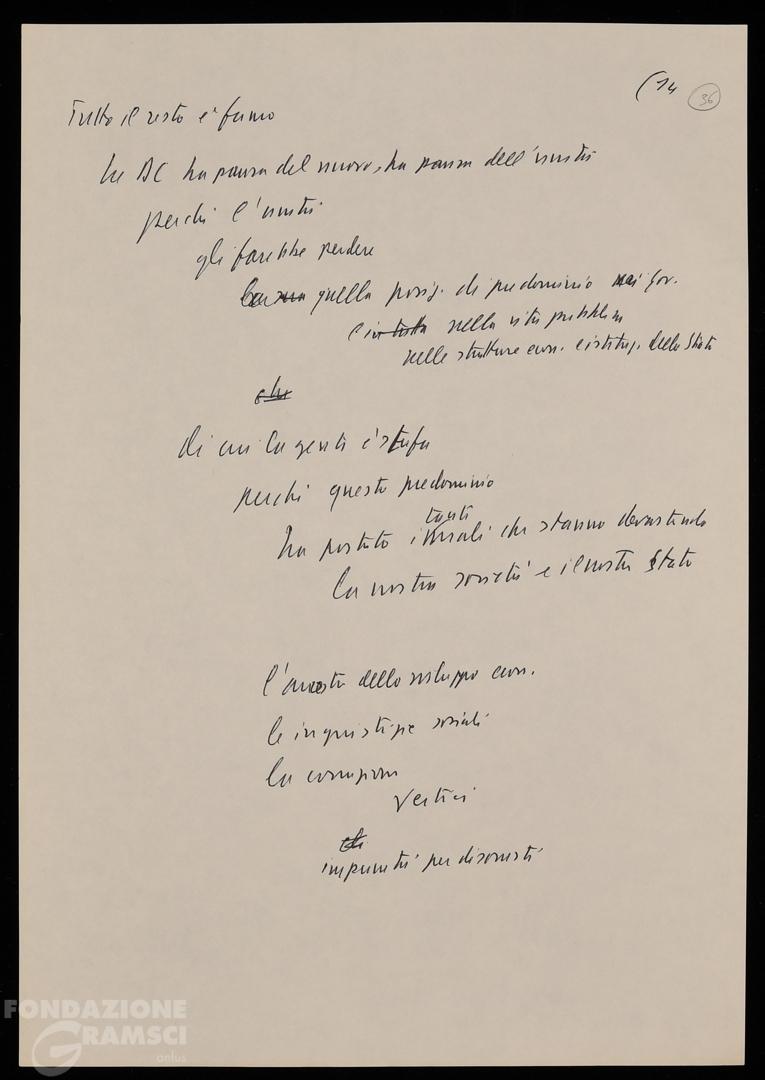 (14
36
Tutto il resto è fumo
La DC ha paura del nuovo, ha paura dell'unità
perché l'unità
gli farebbe perdere
quella posiz. di predominio nei gov.
e in tutta nella vita pubblica
nelle strutture econ. e istituz. dello Stato
che
di cui la gente è stufa
perché questo predominio
tanti
ha portato i mali che stanno devastando
la nostra società e il nostro Stato
l'arresto dello sviluppo econ.
le ingiustizie sociali
la corruzione
vertici
impunità per disonesti
FONDAZIONE
GRAMSCI
onlus